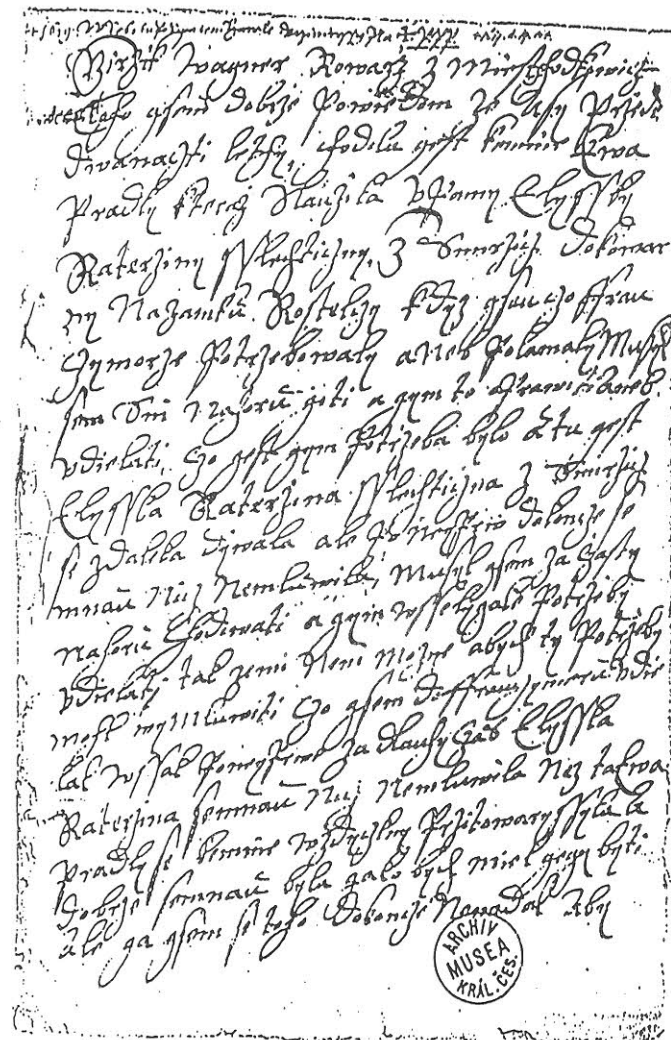 Girzik Wagner Kowarz z Miesteczka
toho gsem dobrze Powiedom ze Asy Przed
dwanaczti lethy, chodila gest kemnie Ewa
Pradly kteraz Slauzila v Panny Elyssky
Katerziny Sslechticzny z Smirzicz. Dokonwar
ny Nazamku Kostelczy kdyz gsau czo ffrau
czymorze Potrzebowaly aneb Polamaly Musyl
sem Sni Nahoru giti a gym to Sprawiti aneb
vdielati, czo gest gym Potrzeba bylo a tu gest
Elysska Katerzina Sslechticzna z Smirzicz
se zdaleka dywala ale Po neyprwe dokoncze se
mnau Nicz Nemluwila, Musyl gsem za czasty
nahoru Choditi a gym wsselygake Potrzeby
vdielati, tak zemi Neni Mozne abych ty Potrzeby
mohl wymluwiti czo gsem do ffrauczymoru vdie
lal wssak Poneyprwe za dlauhy czas Elysska
Katerzina semnau Nicz Nemluwila Nez ta Ewa
Pradly se kemnie wzdyczky Przitowaryssyla a
dobrze semnau byla gako bych miel gegy byti
ale ga gsem se toho dokoncze Nenadal Aby
ARCHIV
MUSEA
KRÁL. ČES.